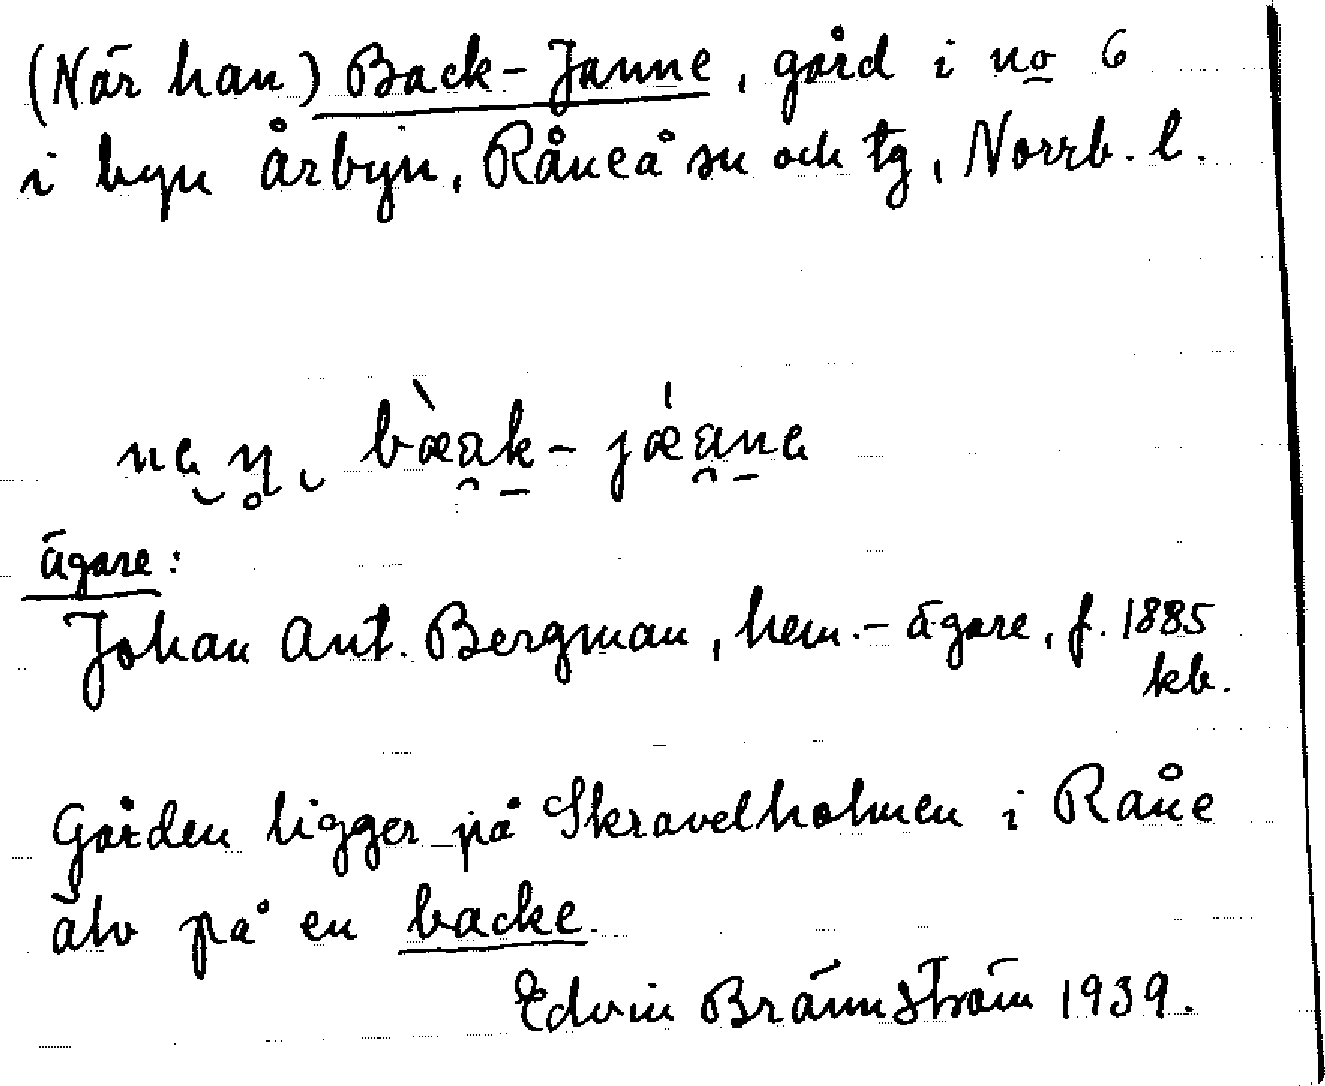 (När han) Back-Janne, gård i no 6
i byn Årbyn, Råneå sn och tg, Norrb. l.
bàak- jáana
ägare:
Johan Ant. Bergman, hem.-ägare, f. 1885
kb.
Gården ligger på Skravelholmen i Råne
älv på en backe.
Edvin Brännström 1939.